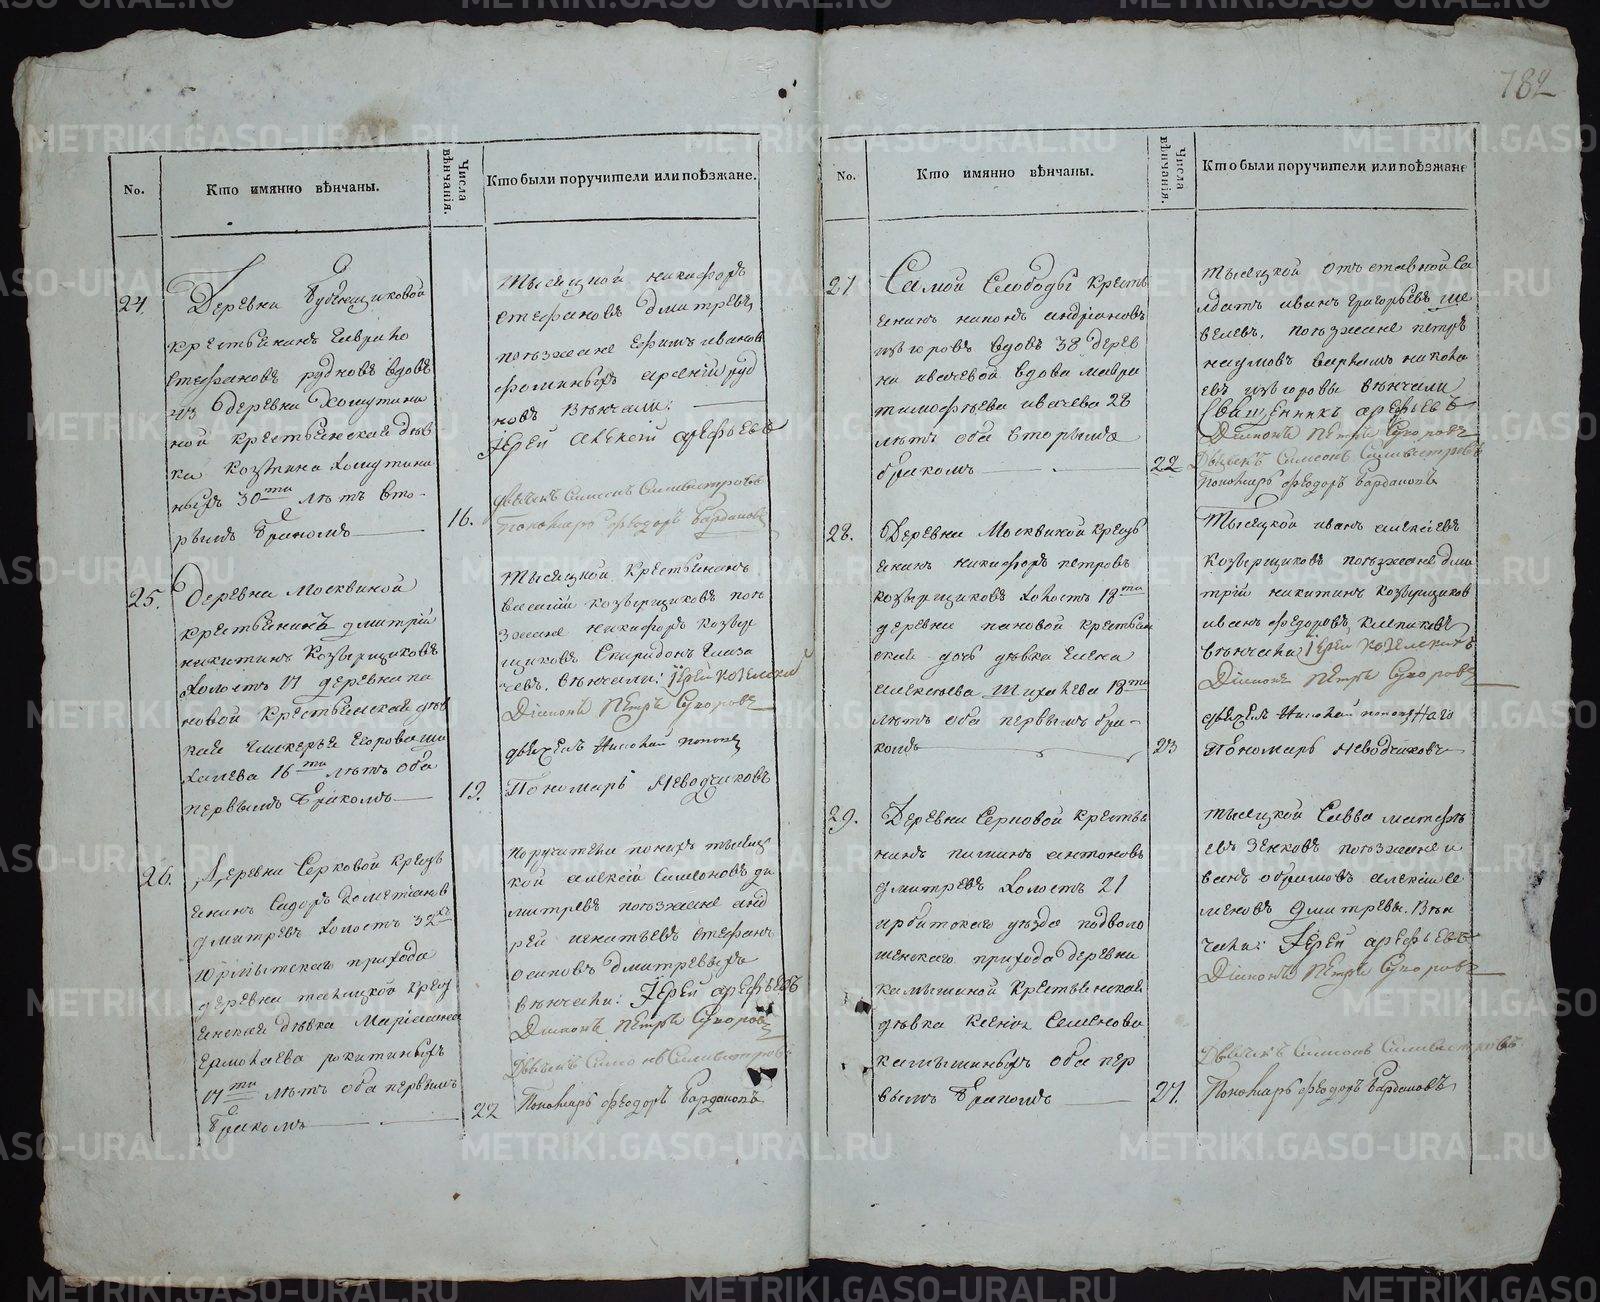 782
No.
Кто имянно вѣнчаны.
Числа вѣнчанія.
Кто были поручители или поѣзжане.
24.
Деревни
крестьянинъ Гаврило
Стефановъ Рудновъ вдовъ
деревни Хомутини
ной крестьянская дѣв
ка Хомутини
ныхъ 30ти лѣтъ вто-
рымъ бракомъ
16.
тысяцкой никифоръ
Стефановъ Дмитревъ
поезжане Ефимъ иванов
фоминыхъ арсеній руд
новъ Вѣнчали:
Іерей Алексій Арефьевъ
дьячекъ Симеонъ Силивестровъ
Пономарь Феодоръ Бардаковъ
25.
Деревни Москвиной
крестьянинъ дмитрій
никитинъ Козырщиковъ
холостъ 17 деревни па
новой крестьянская дѣв
ка Гликерья Егорова ми
халева 16ти лѣтъ оба
первымъ бракомъ
19.
тысяцкой крестьянинъ
василій козырщиковъ пое
зжане никифоръ козыр
щиковъ Спиридонъ Глаза
чевъ. вѣнчали: Іерей
Діаконъ Петръ Суворовъ
дьячекъ Николай поповъ
Пономарь Неводчиковъ
26.
Деревни Серковой крест
янинъ Сидоръ Дометіанов
дмитревъ холостъ 32хъ
Юрмытскаго прихода
деревни талицкой крест
янская дѣвка Маріамна
Ермолаева рокитиныхъ
17ти лѣтъ оба первымъ
бракомъ
22
поручители по нихъ тысяц
кой алексій Симеоновъ ди
митревъ поезжане анд
рей игнатьевъ стефанъ
осиповъ Дмитревыхъ
вѣнчали: Іерей Арефьевъ
Діаконъ Петръ Суворовъ
Дьячекъ Симеонъ Силивестровъ
Пономарь Феодоръ Бардаковъ
No.
Кто имянно вѣнчаны.
Числа вѣнчанія.
Кто были поручители или поѣзжане
27
Самой Слободы кресть
янинъ никонъ андріановъ
изгоровъ вдовъ 38 дерев
ни ивачевой вдова мавра
тимофѣева ивачева 28
лѣтъ оба вторымъ
бракомъ
22
тысяцкой отставной са
лдатъ иванъ григорьевъ ше
велевъ, поезжане петръ
наумовъ варламъ никола
евъ изгоровы вѣнчали
Священникъ Арефьевъ
Діаконъ Петръ Суворовъ
Дьячекъ Симеонъ Силивестровъ
Пономарь Феодоръ Бардаковъ
28.
Деревни Москвиной кресть
янинъ никифоръ петровъ
козырщиковъ холостъ 18ти
деревни пановой крестьян
ская дочь дѣвка Елена
алексѣева михалева 18ти
лѣтъ оба первымъ бра-
комъ
23
Тысяцкой иванъ алексѣевъ
Козырщиковъ поезжане дми
трій никитинъ козырщиков
иванъ федоровъ
вѣнчали Іерей
Діаконъ Петръ Суворовъ
дьячекъ Николай
Пономарь Неводчиковъ
29.
Деревни Серковой кресть
янинъ антоновъ
дмитревъ холостъ 21
ирбитскаго уѣзда подволо
шенскаго прихода деревни
камышиной крестьянская
дѣвка Ксенія Семенова
камышиныхъ оба пер
вымъ бракомъ
27.
тысяцкой Савва матфѣ
евъ Зенковъ поезжане и
ванъ абрамовъ алексій се
меновъ Дмитревы. Вѣн
чали: Іерей Арефьевъ
Діаконъ Петръ Суворовъ
Дьячекъ Симеонъ Силивестровъ
Пономарь Феодоръ Бардаковъ
METRIKI.GASO-URAL.RU